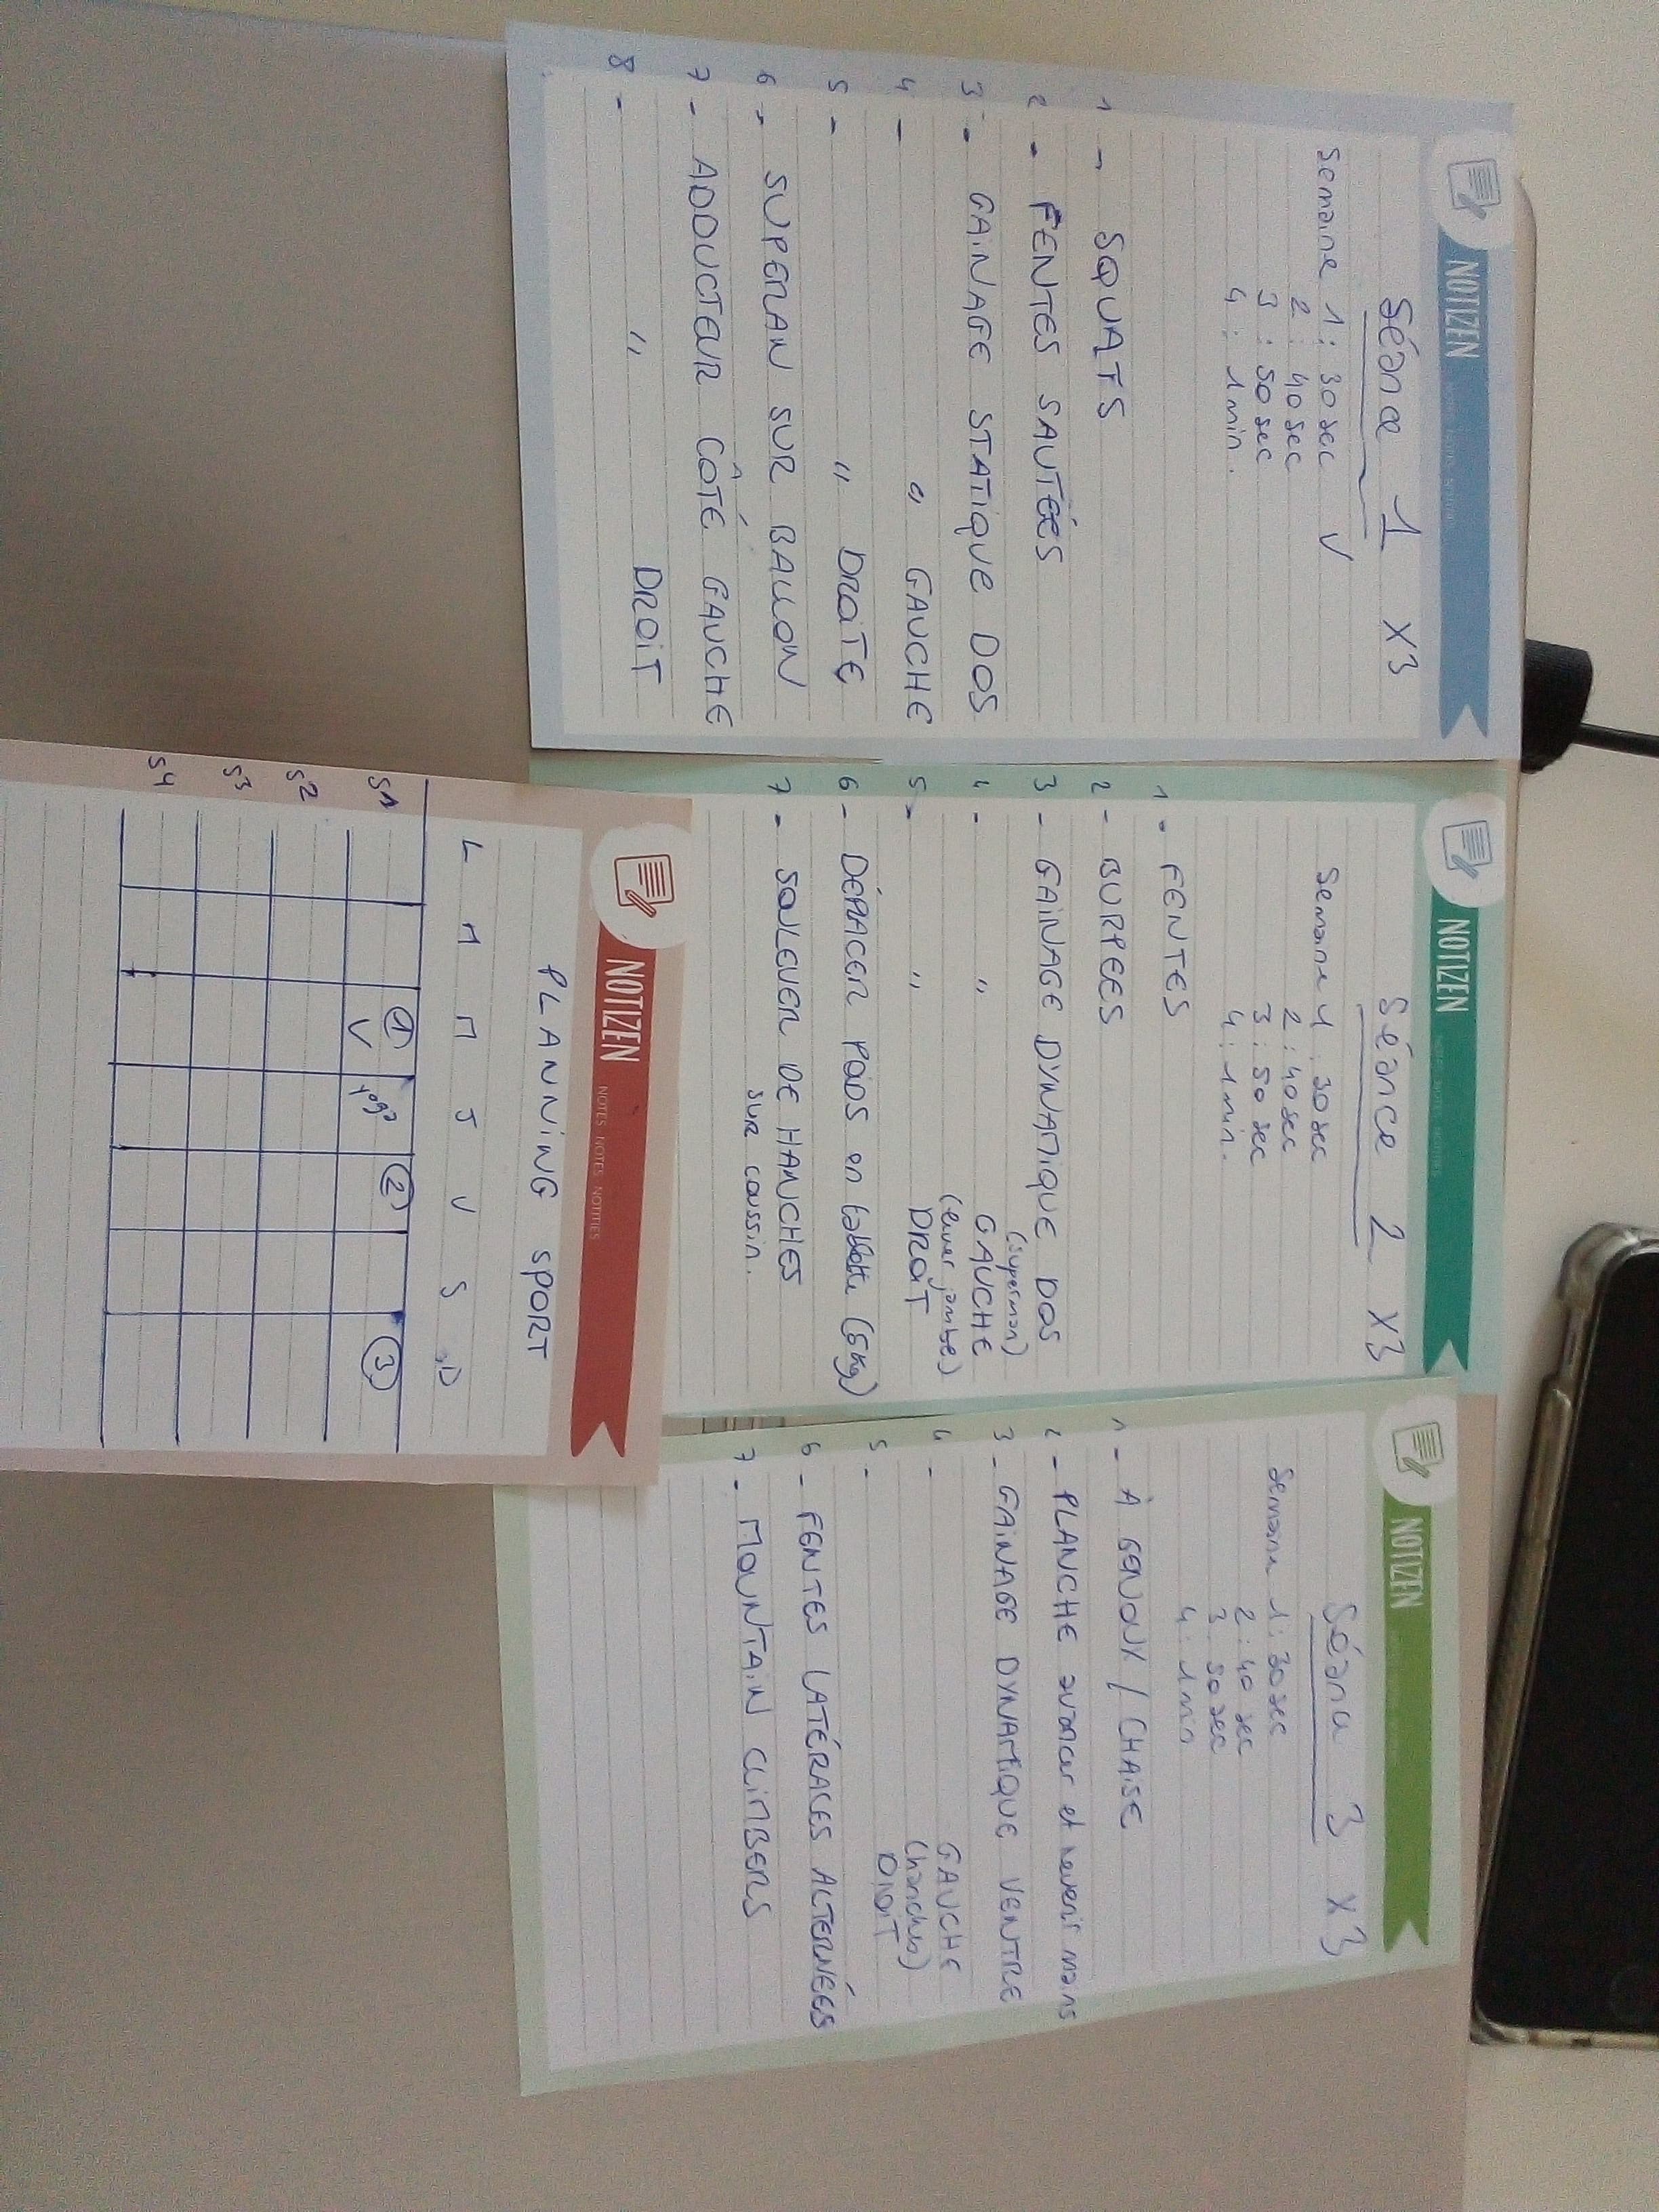 NOTIZEN
Séance 1 x3
Semaine 1 : 30 sec V
2 : 40 sec
3 : 50 sec
4 : 1 min.
1 - SQUATS
2 - FENTES SAUTÉES
3 - GAINAGE STATIQUE DOS
4 - " GAUCHE
5 - " DROITE
6 - SUPERMAN SUR BALLON
7 - ADDUCTEUR CÔTÉ GAUCHE
8 - " DROIT
NOTIZEN
Séance 2 x3
Semaine 1 : 30 sec
2 : 40 sec
3 : 50 sec
4 : 1 min.
1 - FENTES
2 - BURPEES
3 - GAINAGE DYNAMIQUE DOS
(superman)
4 - " GAUCHE
(lever jambe)
5 - " DROIT
6 - DÉPLACER POIDS en (5kg)
7 - SOULEVER DE HANCHES
sur coussin.
NOTIZEN
Séance 3 x3
Semaine 1 : 30 sec
2 : 40 sec
3 : 50 sec
4 : 1 min
1 - À GENOUX / CHAISE
2 - PLANCHE avancer et revenir mains
3 - GAINAGE DYNAMIQUE VENTRE
4 - GAUCHE
(hanches)
5 - DROIT
6 - FENTES LATÉRALES ALTERNÉES
7 - MOUNTAIN CLIMBERS
NOTIZEN NOTES NOTES NOTITIES
PLANNING SPORT
L M M J V S D
S1 1 V yoga 2 3
S2
S3
S4